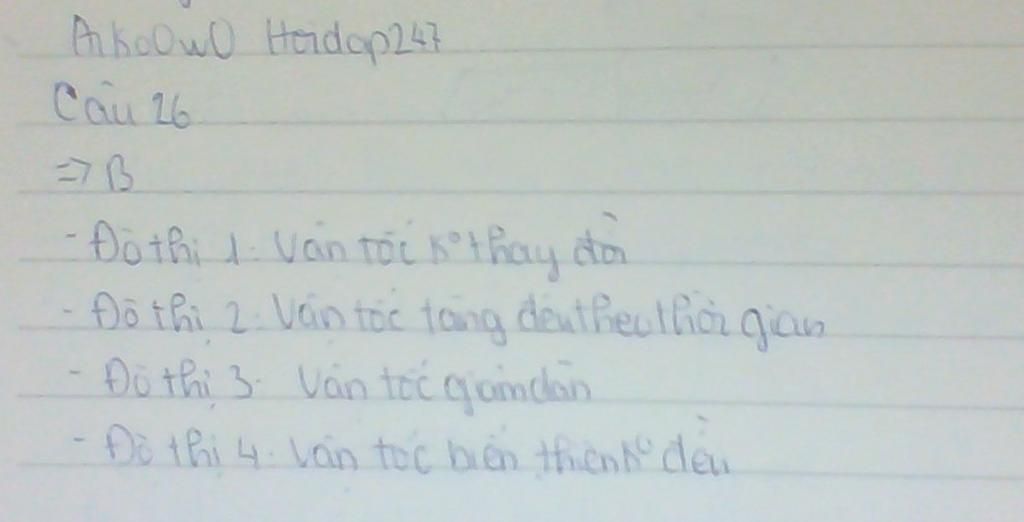 AikoOwO Hoidap247
Câu 26
=> B
- Đồ thị 1: Vận tốc k° thay đổi
- Đồ thị 2: Vận tốc tăng đều theo thời gian
- Đồ thị 3: Vận tốc giảm dần
- Đồ thị 4: Vận tốc biến thiên k° đều